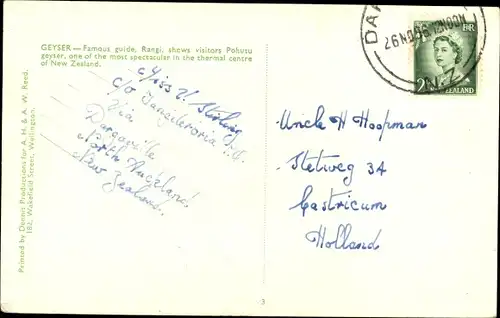 GEYSER — Famous guide, Rangi, shows visitors Pohutu
geyser, one of the most spectacular in the thermal centre
of New Zealand.
c/o
Via
Dargaville
North Auckland
New Zealand.
Printed by Dennis Productions for A. H. & A. W. Reed,
182, Wakefield Street, Wellington.
3
DAR
26NO56 12NOON
N.Z.
2
NEW ZEALAND
Uncle H Hoopman
Stetweg 34
Castricum
Holland